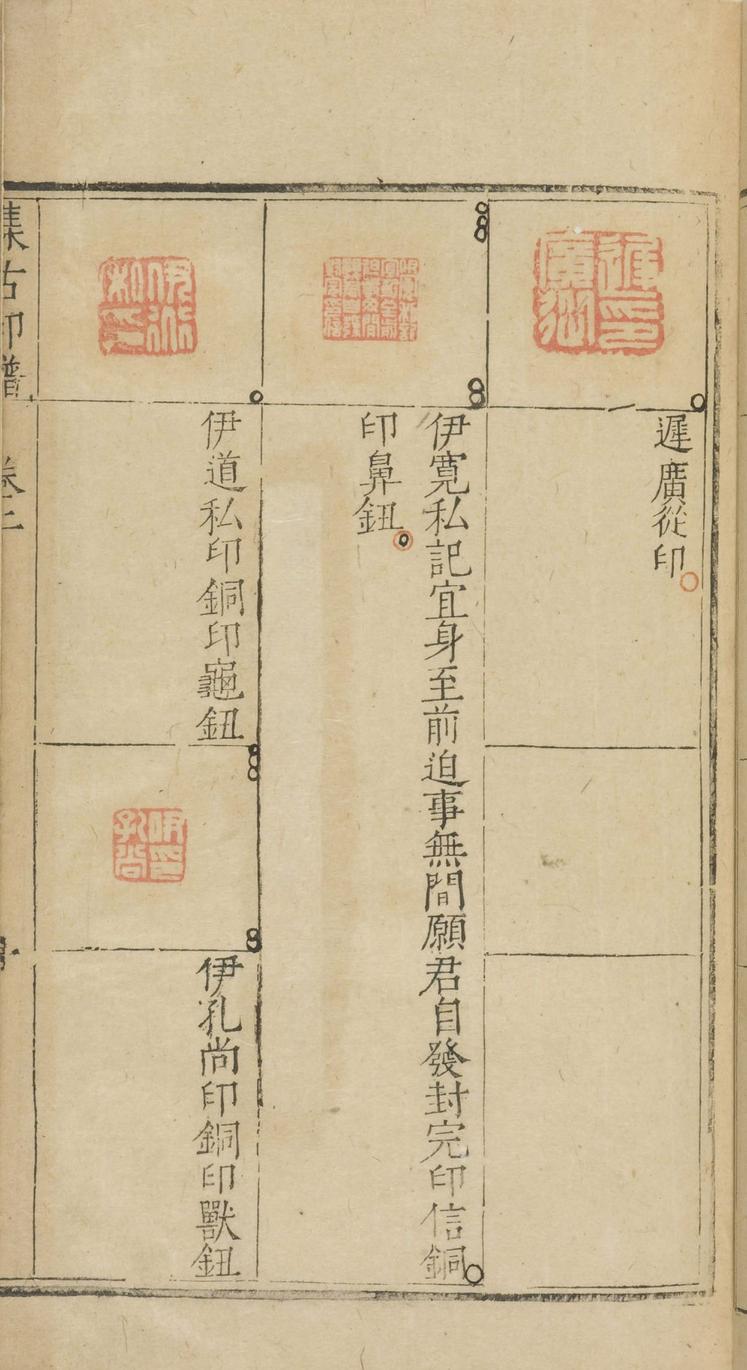 遲廣從印
伊寬私記宜身至前迫事無間願君自發封完印信銅
印鼻鈕
伊道私印銅印龜鈕
伊孔尚印銅印獸鈕
集古印譜